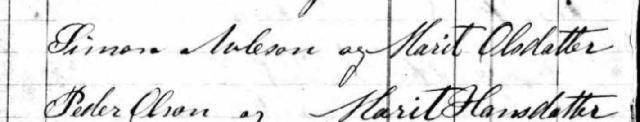 Simon Nobeson og Marit Olsdatter
Peder Olson og Marit Hansdatter